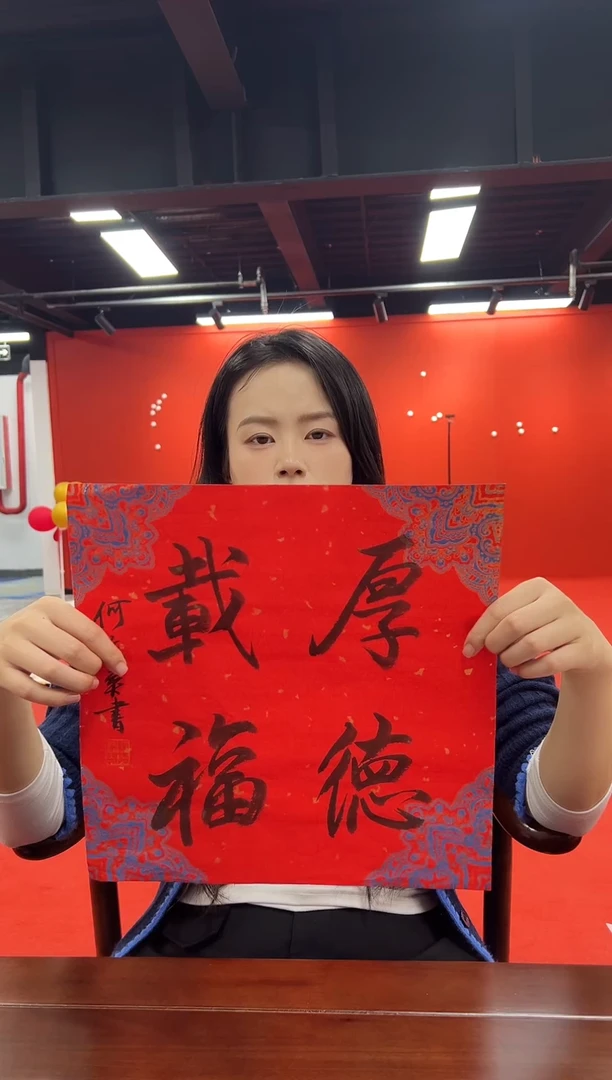 厚德
載福
何
書